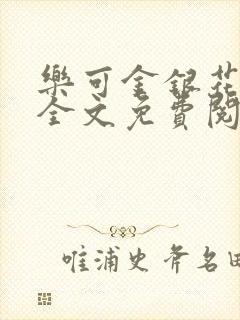 樂可金銀花
全文免費閱
唯浦史斧名